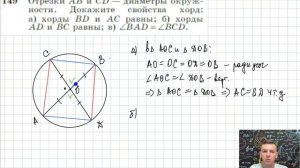 149 Отрезки AB и CD — диаметры окруж-
ности. Докажите свойства хорд:
а) хорды BD и AC равны; б) хорды
AD и BC равны; в) ∠BAD = ∠BCD.
а) В △AOC и △DOB:
AO = OC = OD = OB - радиусы
∠AOC = ∠DOB - верт.
⇒ △AOC = △DOB ⇒ AC = BD ч.т.д.
б)
C
B
O
A
D